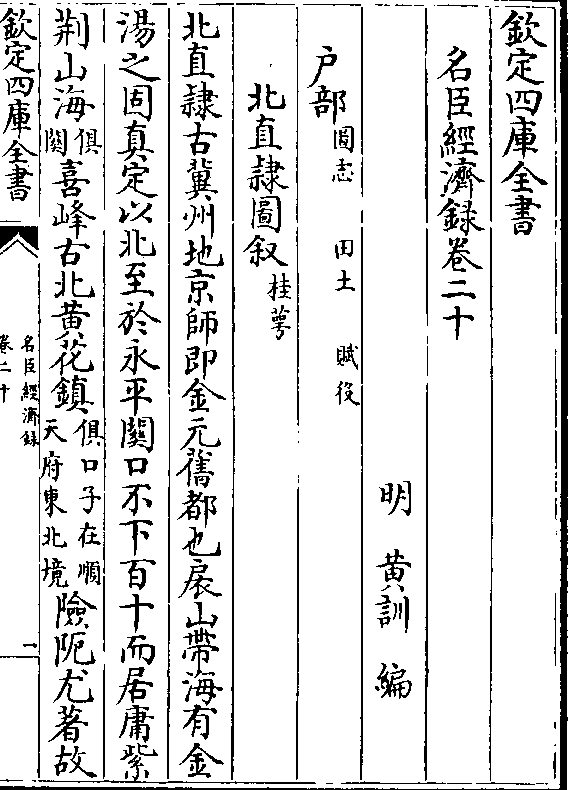 欽定四庫全書
名臣經濟錄卷二十
明 黃訓 編
户部圖志 田土 賦役
北直隷圖叙桂萼
北直隷古冀州地京師即金元舊都也扆山帶海有金
湯之固真定以北至於永平關口不下百十而居庸紫
荆山海俱關喜峰古北黄花鎮俱口子在順天府東北境險阨尤著故
欽定四庫全書
名臣經濟錄
卷二十
一